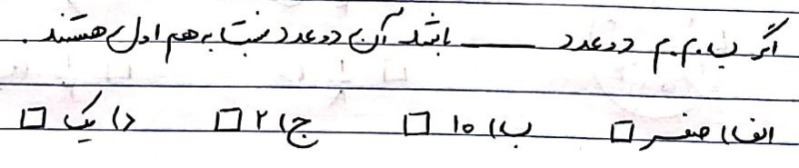 اگر ب.م.م دو عدد ـــــ باشد آن دو عدد نسبت به هم اول هستند.
الف) صفر □ ب) ۱۰ □ ج) ۲ □ د) یک □